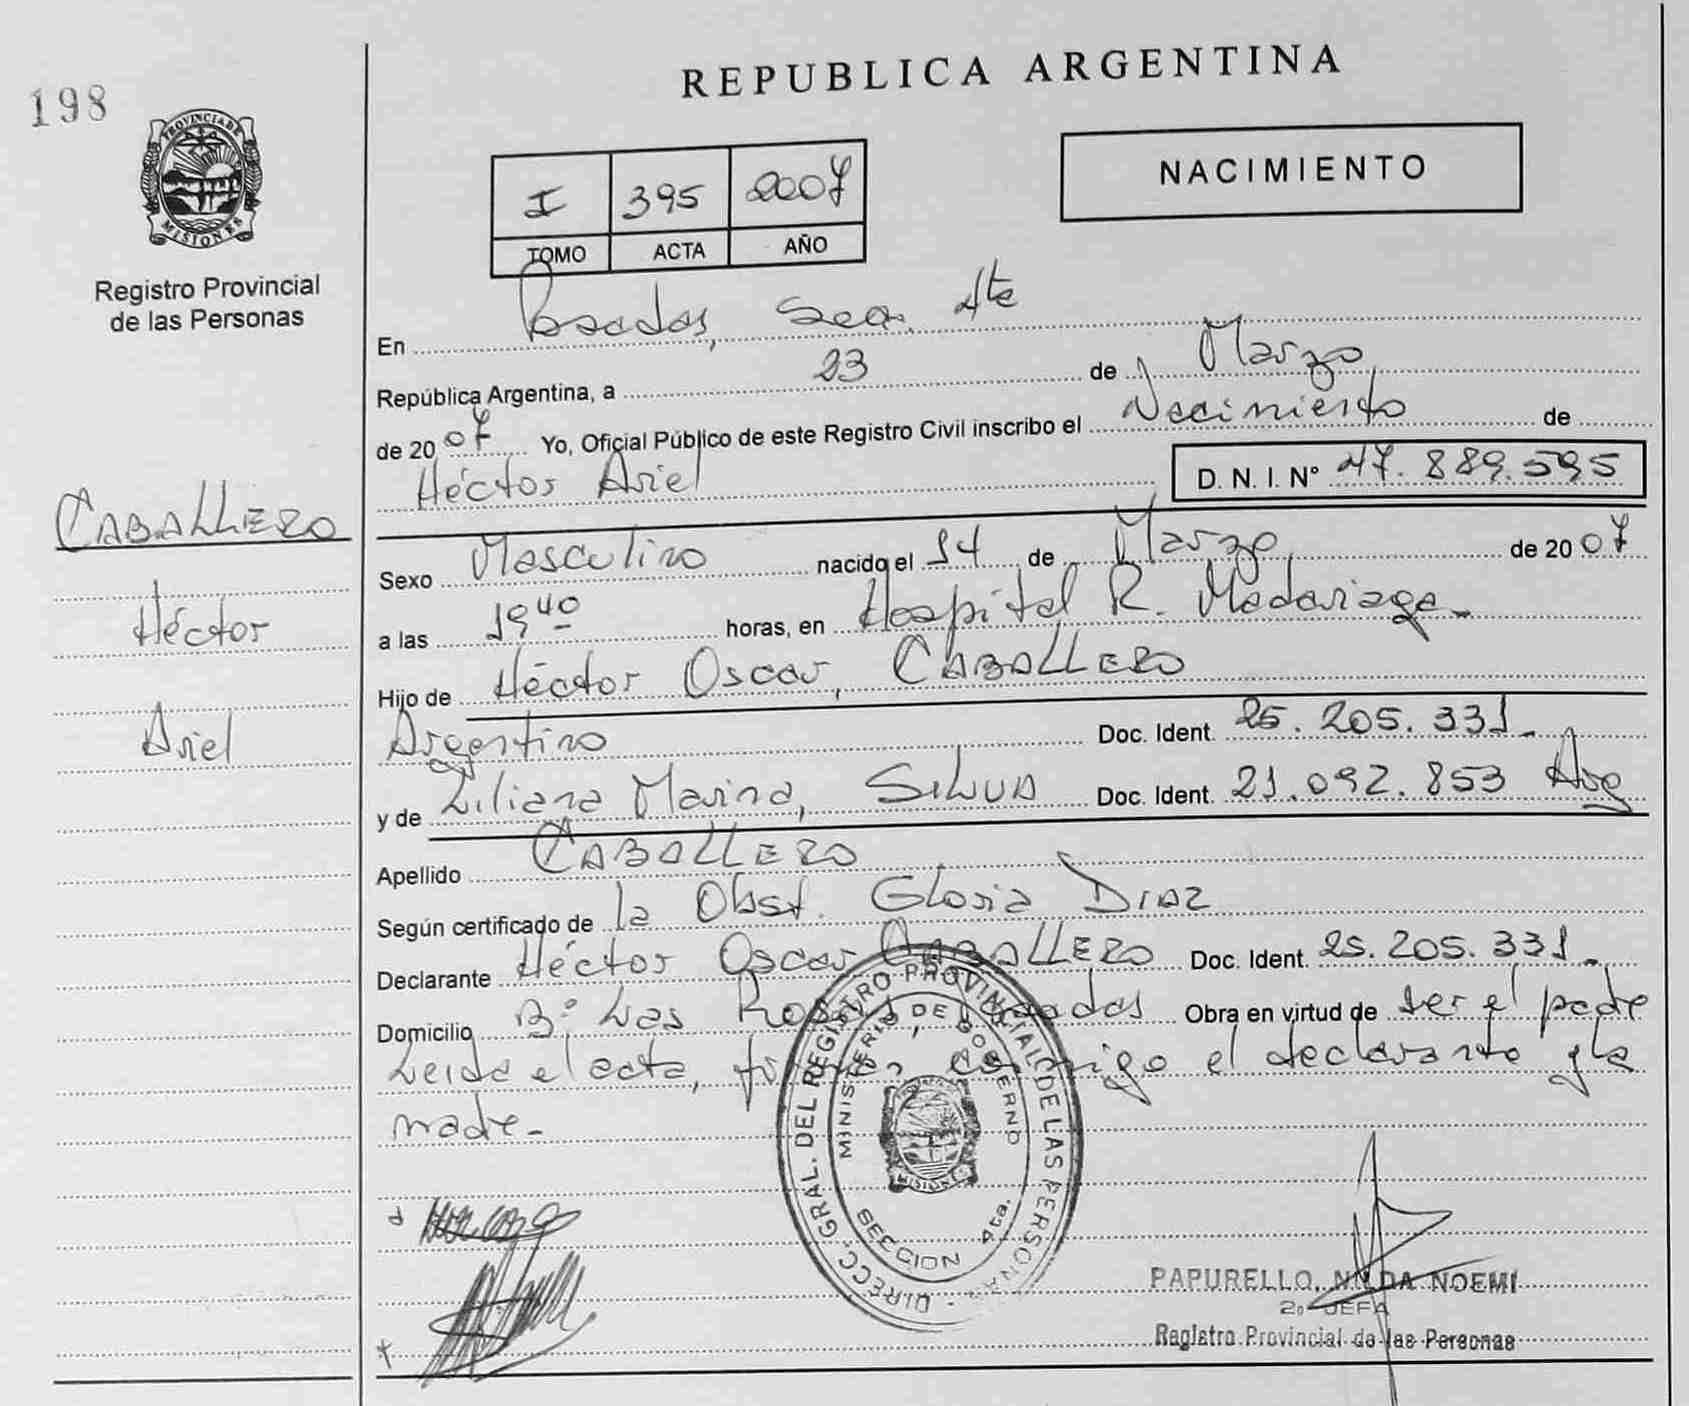 198
REPUBLICA ARGENTINA
PROVINCIA DE
MISIONES
Registro Provincial
de las Personas
I 395 2007
TOMO ACTA AÑO
NACIMIENTO
En Posadas, Sec. 4ta
República Argentina, a 23 de Marzo
de 2007 Yo, Oficial Público de este Registro Civil inscribo el Nacimiento de
Héctor Ariel D. N. I. N° 47.889.595
CABALLERO
Héctor
Ariel
Sexo Masculino nacido el 14 de Marzo de 2007
a las 19 40 horas, en Hospital R. Madariaga-
Hijo de Héctor Oscar, CABALLERO
Argentino Doc. Ident. 25.205.331-
y de Liliana Marina, SILVA Doc. Ident. 21.092.853 Arg
Apellido CABALLERO
Según certificado de la Obst. Gloria DIAZ
Declarante Héctor Oscar CABALLERO Doc. Ident. 25.205.331-
Domicilio B° Las Rosas, Posadas Obra en virtud de ser el padre
Leida el acta, firman conmigo el declarante y la
madre-
DIRECC. GRAL. DEL REGISTRO PROVINCIAL DE LAS PERSONAS
MINISTERIO DE GOBIERNO
MISIONES
SECCION 4ta.
PAPURELLO, NOEMI
2° JEFA
Registro Provincial de las Personas